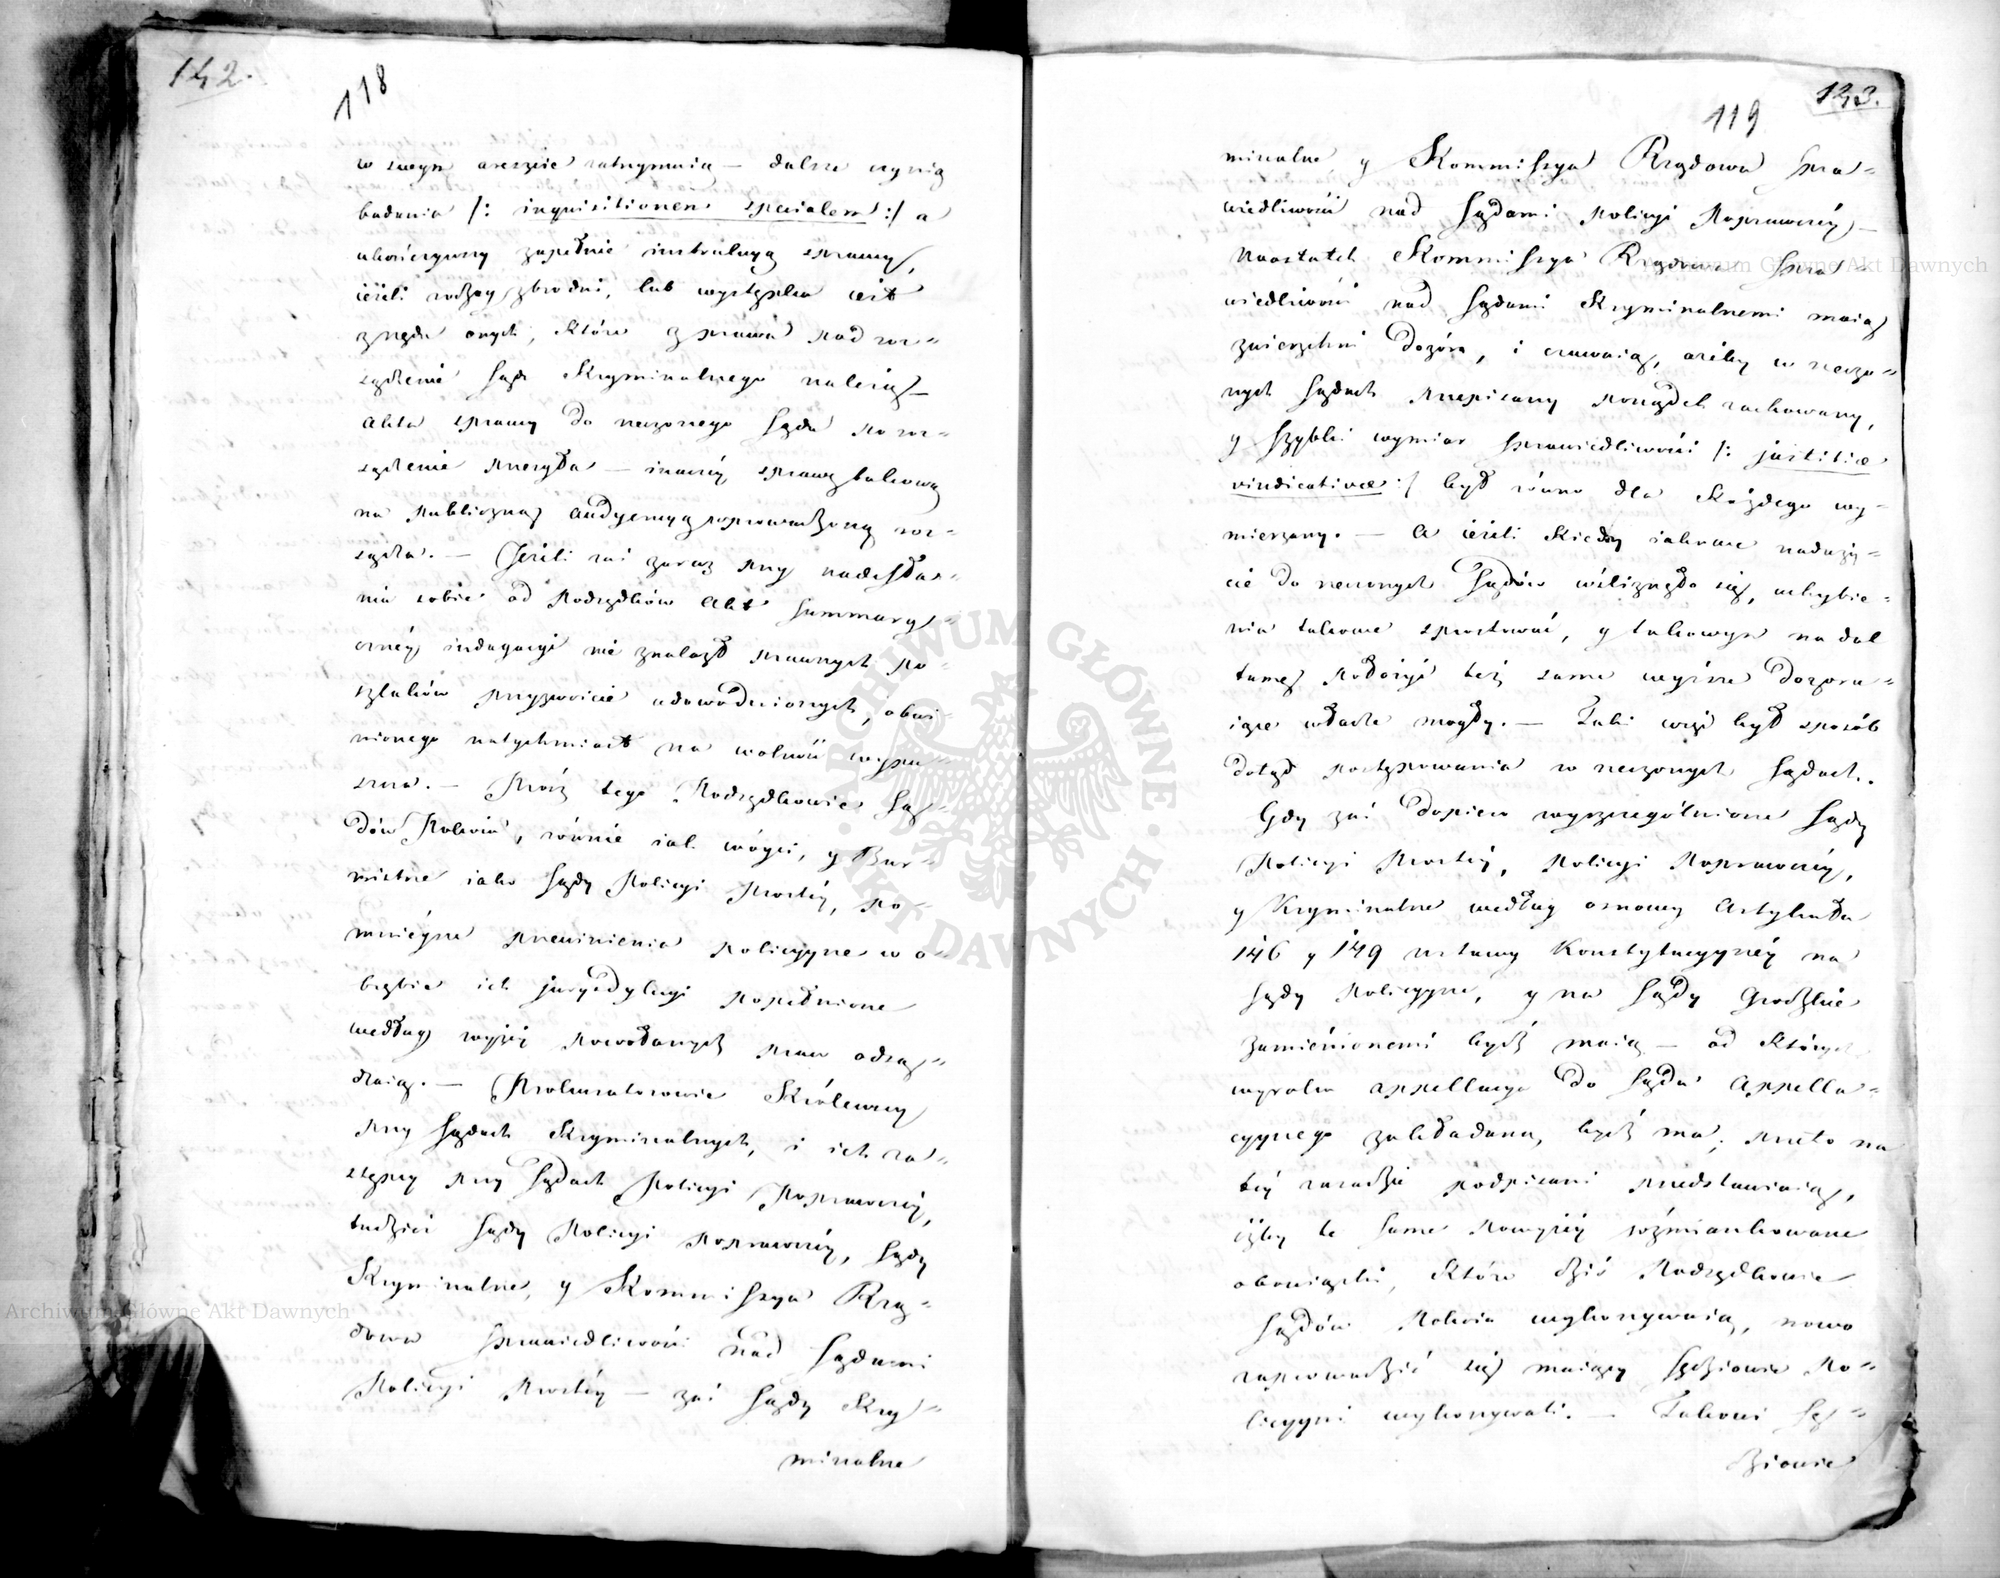 142.
118
w swym areszcie zatrzymuią — dalsze czynią
badania /: inquisitionem specialem :/ a
ukończywszy zupełnie instrukcyą sprawy,
ieżeli rodzay zbrodni, lub występku iest
z rzędu onych, które z prawa pod roz-
sądzenie Sądu Kryminalnego należą —
akta sprawy do rzeczonego Sądu po roz-
sądzenie przesyła — inaczéy sprawę takową
na publiczną audyencyą wprowadzoną roz-
sądza. — Jeżeli zaś zaraz przy nadesła-
niu sobie od Podsędków akt summary-
cznéy indagacyi nie znalazł prawnych po-
szlaków przyzwoicie udowodnionych, obwi-
nionego natychmiast na wolność wypu-
szcza. — Prócz tego Podsędkowie Są-
dów Pokoiu, równie iak wóyci, y Bur-
mistrze iako Sądy Policyi Prostéy, po-
mnieysze przewinienia policyyne w o-
brębie ich jurysdykcyi popełnione
według wyżéy powołanych praw odsą-
dzaią. — Prokuratorowie Królewscy
przy Sądach Kryminalnych, i ich za-
stępcy przy Sądach Policyi Poprawczéy,
tudzież Sądy Policyi Poprawczéy, Sądy
Kryminalne, y Kommissya Rzą-
dowa Sprawiedliwości nad Sądami
Policyi Prostéy — zaś Sądy Kry-
minalne
143.
119
minalne y Kommissya Rządowa Spra-
wiedliwości nad Sądami Policyi Poprawczéy —
Naostatek Kommissya Rządowa Spra-
wiedliwości nad Sądami Kryminalnemi maią
zwierzchni Dozór, i czuwaią, ażeby w rzeczo-
nych Sądach przepisany porządek zachowany,
y szybki wymiar sprawiedliwości /: justitiae
vindicativae :/ był równo dla każdego wy-
mierzany. — A ieżeli kiedy iakowe naduży-
cie do rzeczonych Sądów wślizнęło się, uchybie-
nia takowe sprostować, y takowym na dal
tamę położyć też same wyższe dozoru-
iące władze mogły. — Taki więc był sposób
dotąd postępowania w rzeczonych Sądach.
Gdy zaś dopiero wyszczególnione Sądy
Policyi Prostéy, Policyi Poprawczéy,
y Kryminalne według osnowy Artykułu
146 y 149 ustawy Konstytucyynéy na
Sądy Policyyne, y na Sądy Grodzkie
zamienionemi bydź maią — od których
wyroku appellacya do Sądu Appella-
cyynego zakładana, bydź ma; przeto na
téy zasadzie podpisani przedstawiaią,
iżby te same powyżéy wzmiankowane
obowiązki, które dziś Podsędkowie
Sądów Pokoiu wykonywaią, nowo
zaprowadzić się maiący Sędziowie Po-
licyyni wykonywali. — Takowi Sę-
dziowie